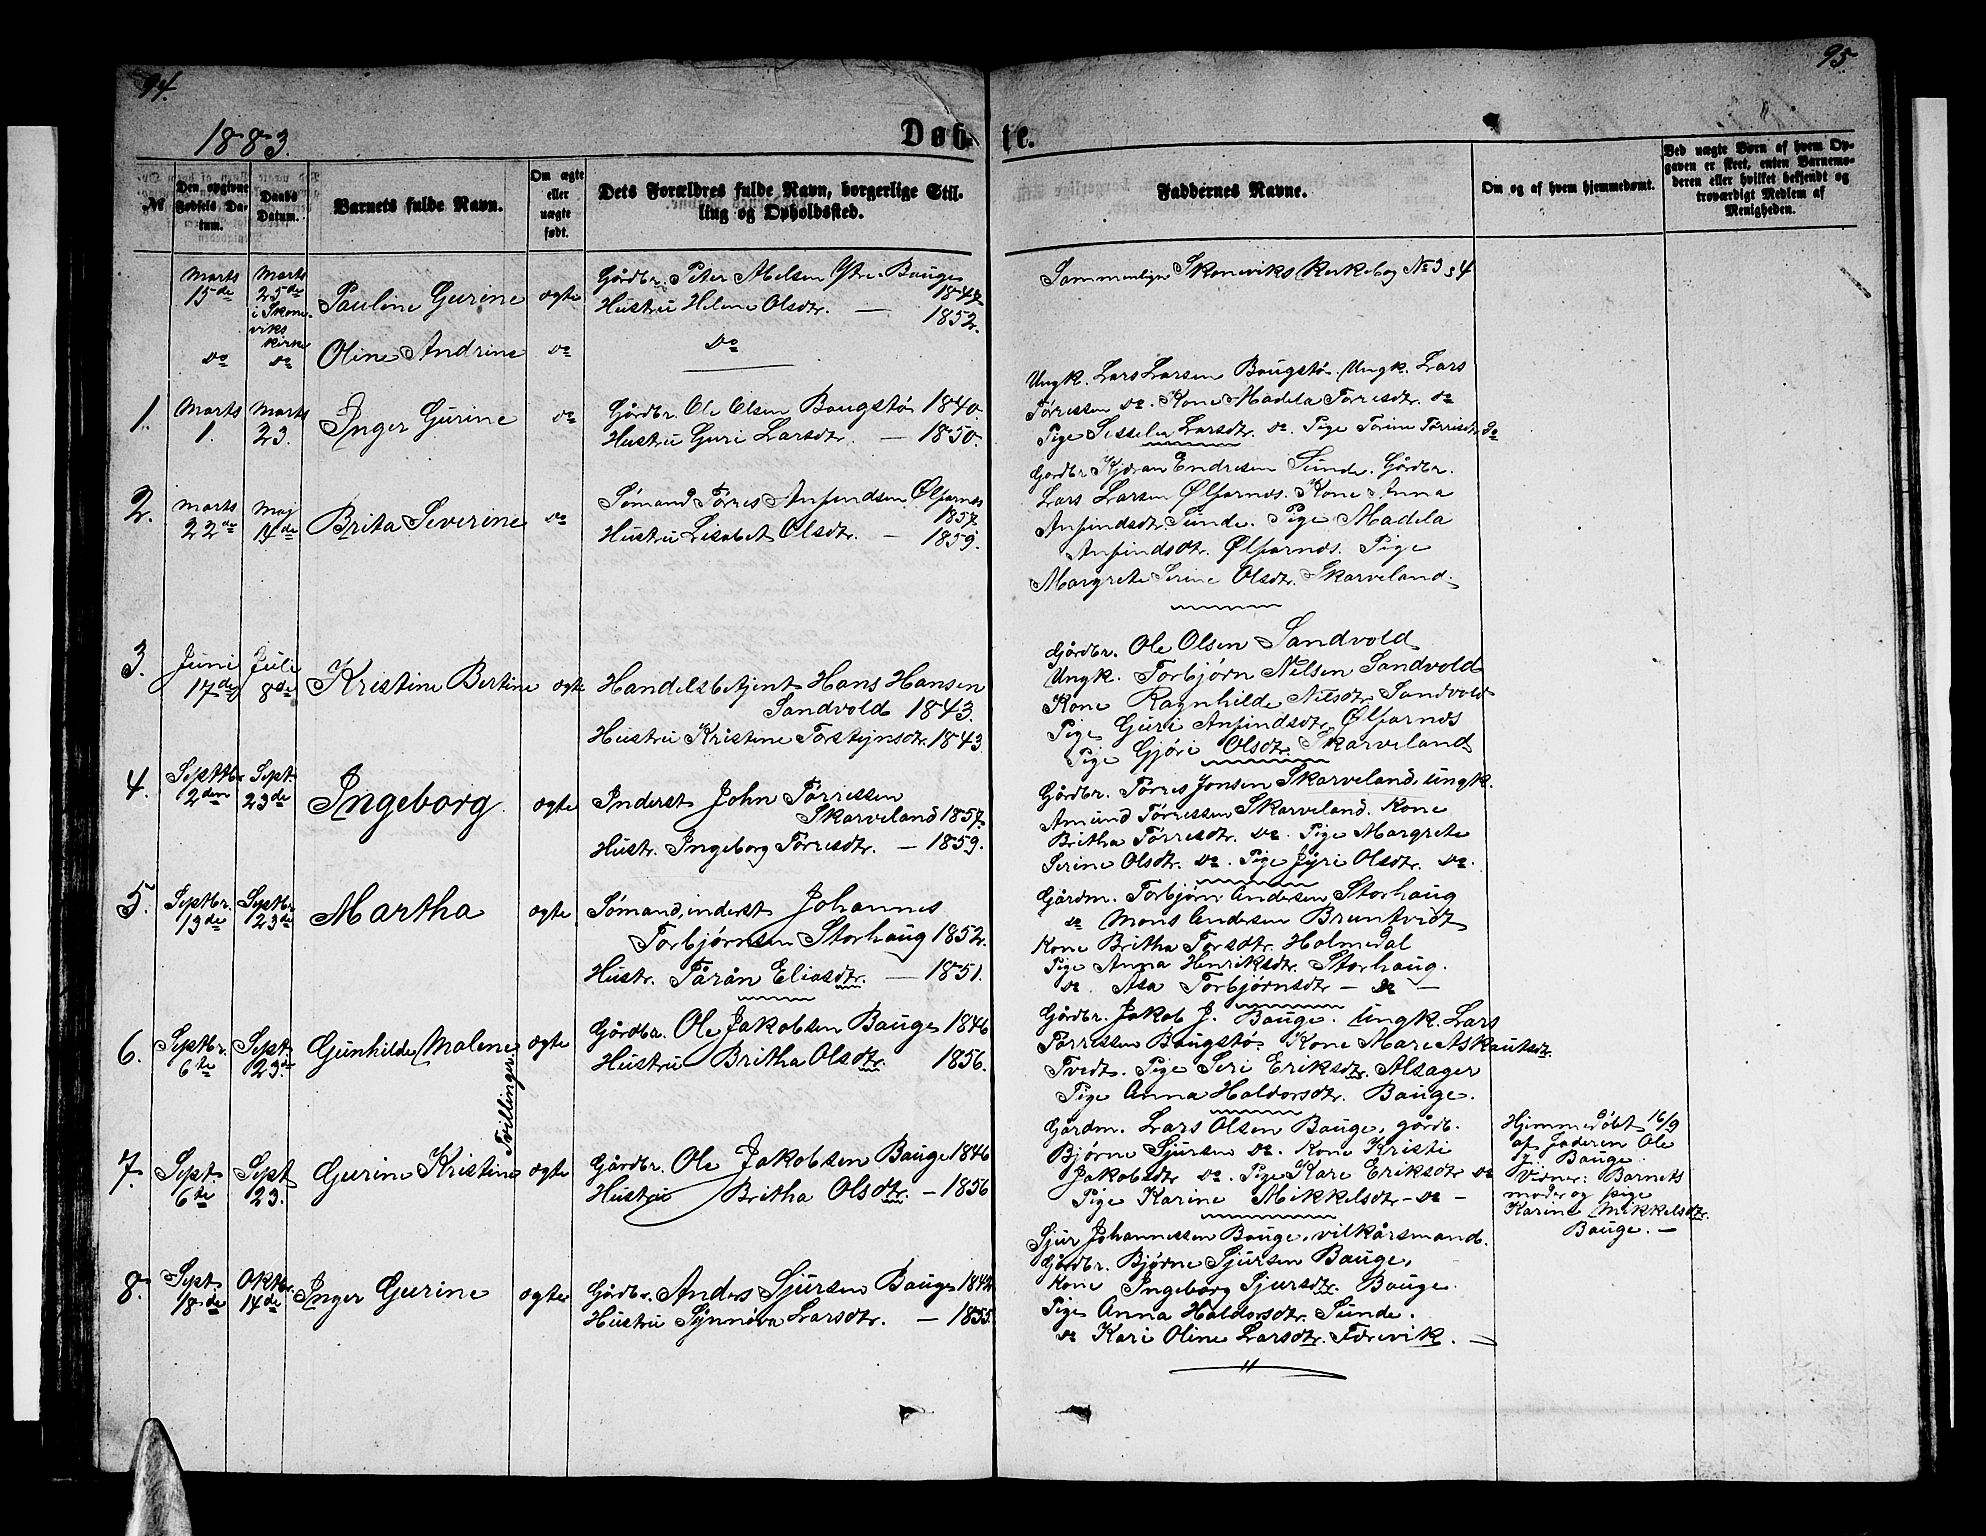 94.
95
1883.
Døb-
te.
№
Den opgivne Fødsels Datum.
Daabs Datum.
Barnets fulde Navn.
Om ægte eller uægte født.
Dets Forældres fulde Navn, borgerlige Stilling og Opholdssted.
Faddernes Navne.
Om og af hvem hjemmedøbt.
Ved uægte Børn af hvem Opgaven er skeet, enten Barnemoderen eller hvilket bekjendt og troværdigt Medlem af Menigheden.
Marts 15de
Marts 25de i Skoneviks Kirke
Pauline Gurine
ægte
Gårdbr. Peter Abelsen Ytre Bauge 1847
Hustru Helene Olsdtr. — 1852.
Sammenlign Skoneviks Kirkebog No 3 & 4
do
do
Oline Andrine
do
do
1.
Marts 1.
Marts 23.
Inger Gurine
do
Gårdbr. Ole Olsen Baugstø 1840.
Hustru Guri Larsdtr. — 1850.
Ungk. Lars Larsen Baugstø. Ungk. Lars
Tørressen do. Kone Madela Tørresdtr. do
Pige Sisselia Larsdtr. do. Pige Torine Tørrisdtr do
2.
Marts 22de
Maj 14de
Brita Severine
do
Sømand Tørres Anfindsen Ølfarnes 1857.
Hustru Lisabet Olsdtr. — 1859.
Gårdbr. Kjøran Endresen Sunde. Gårdbr.
Lars Larsen Ølfarnes. Kone Anna
Anfindsdtr. Sunde. Pige Madela
Anfindsdtr. Ølfarnes. Pige
Margrete Serine Olsdtr. Skarveland.
3.
Juni 17de
Juli 8de
Kristine Bertine
ægte
Handelsbetjent Hans Hansen
Sandvold 1843.
Hustru Kristine Torstejnsdtr. 1843.
Gårdbr. Ole Olsen Sandvold
Ungk. Torbjørn Nilsen Sandvold
Kone Ragnhilde Nilsdtr. Sandvold
Pige Guri Anfindsdtr. Ølfarnes
Pige Gjøri Olsdtr. Skarveland
4.
Septbr 2den
Sept. 23de
Ingeborg
ægte
Inderst John Tørressen
Skarveland 1857.
Hustr. Ingeborg Tørresdtr. — 1859.
Gårdbr. Tørres Jonsen Skarveland, ungk.
Amund Tørressen Skarveland. Kone
Britha Tørresdtr. do. Pige Margrete
Serine Olsdtr. do. Pige Jyri Olsdtr. do.
5.
Septbr. 13de
Septbr. 23de
Martha
ægte
Sømand, inderst Johannes
Torbjørnsen Storhaug 1852.
Hustr. Påran Eliasdtr. — 1851.
Gårdm. Torbjørn Andersen Storhaug
do Mons Andersen Bruntvedt
Kone Britha Torsdtr. Holmedal
Pige Anna Henriksdtr. Storhaug.
do. Asa Torbjørnsdtr — do —
6.
Septbr. 6te
Sept. 23de
Gunhilde Malene
Tvillinger.
ægte
Gårdbr. Ole Jakobsen Bauge 1846
Hustru Britha Olsdtr. 1856.
Gårdbr. Jakob J. Bauge. Ungk. Lars
Tørressen Baugstø. Kone Mari Askautsdtr.
Tvedt. Pige Seri Eriksdtr. Alsager
Pige Anna Haldorsdtr. Bauge.
7.
Sept. 6te
Sept 23.
Gurine Kristine
ægte
Gårdbr. Ole Jakobsen Bauge 1846
Hustru Britha Olsdtr. — 1856
Gårdm. Lars Olsen Bauge, gårdb.
Bjørne Sjursen do. Kone Kristi
Jakobsdtr do. Pige Kari Eriksdtr do
Pige Karine Mikkelsdtr — do —
Hjemmedøbt 16/9
af Faderen Ole
J. Bauge.
Vidner: Barnets
moder og pige
Karine Mikkelsdtr.
Bauge. —
8.
Sept. 18de
Oktbr. 14de
Inger Gurine
ægte
Gårdbr. Anders Sjursen Bauge 1842
Hustru Synnøva Larsdtr. — 1855.
Sjur Johannessen Bauge, vilkårsmand.
Gårdbr. Bjørne Sjursen Bauge,
Kone Ingeborg Sjursdtr. Bauge.
Pige Anna Haldorsdtr. Sunde.
do Kari Oline Larsdtr. Førevik. —